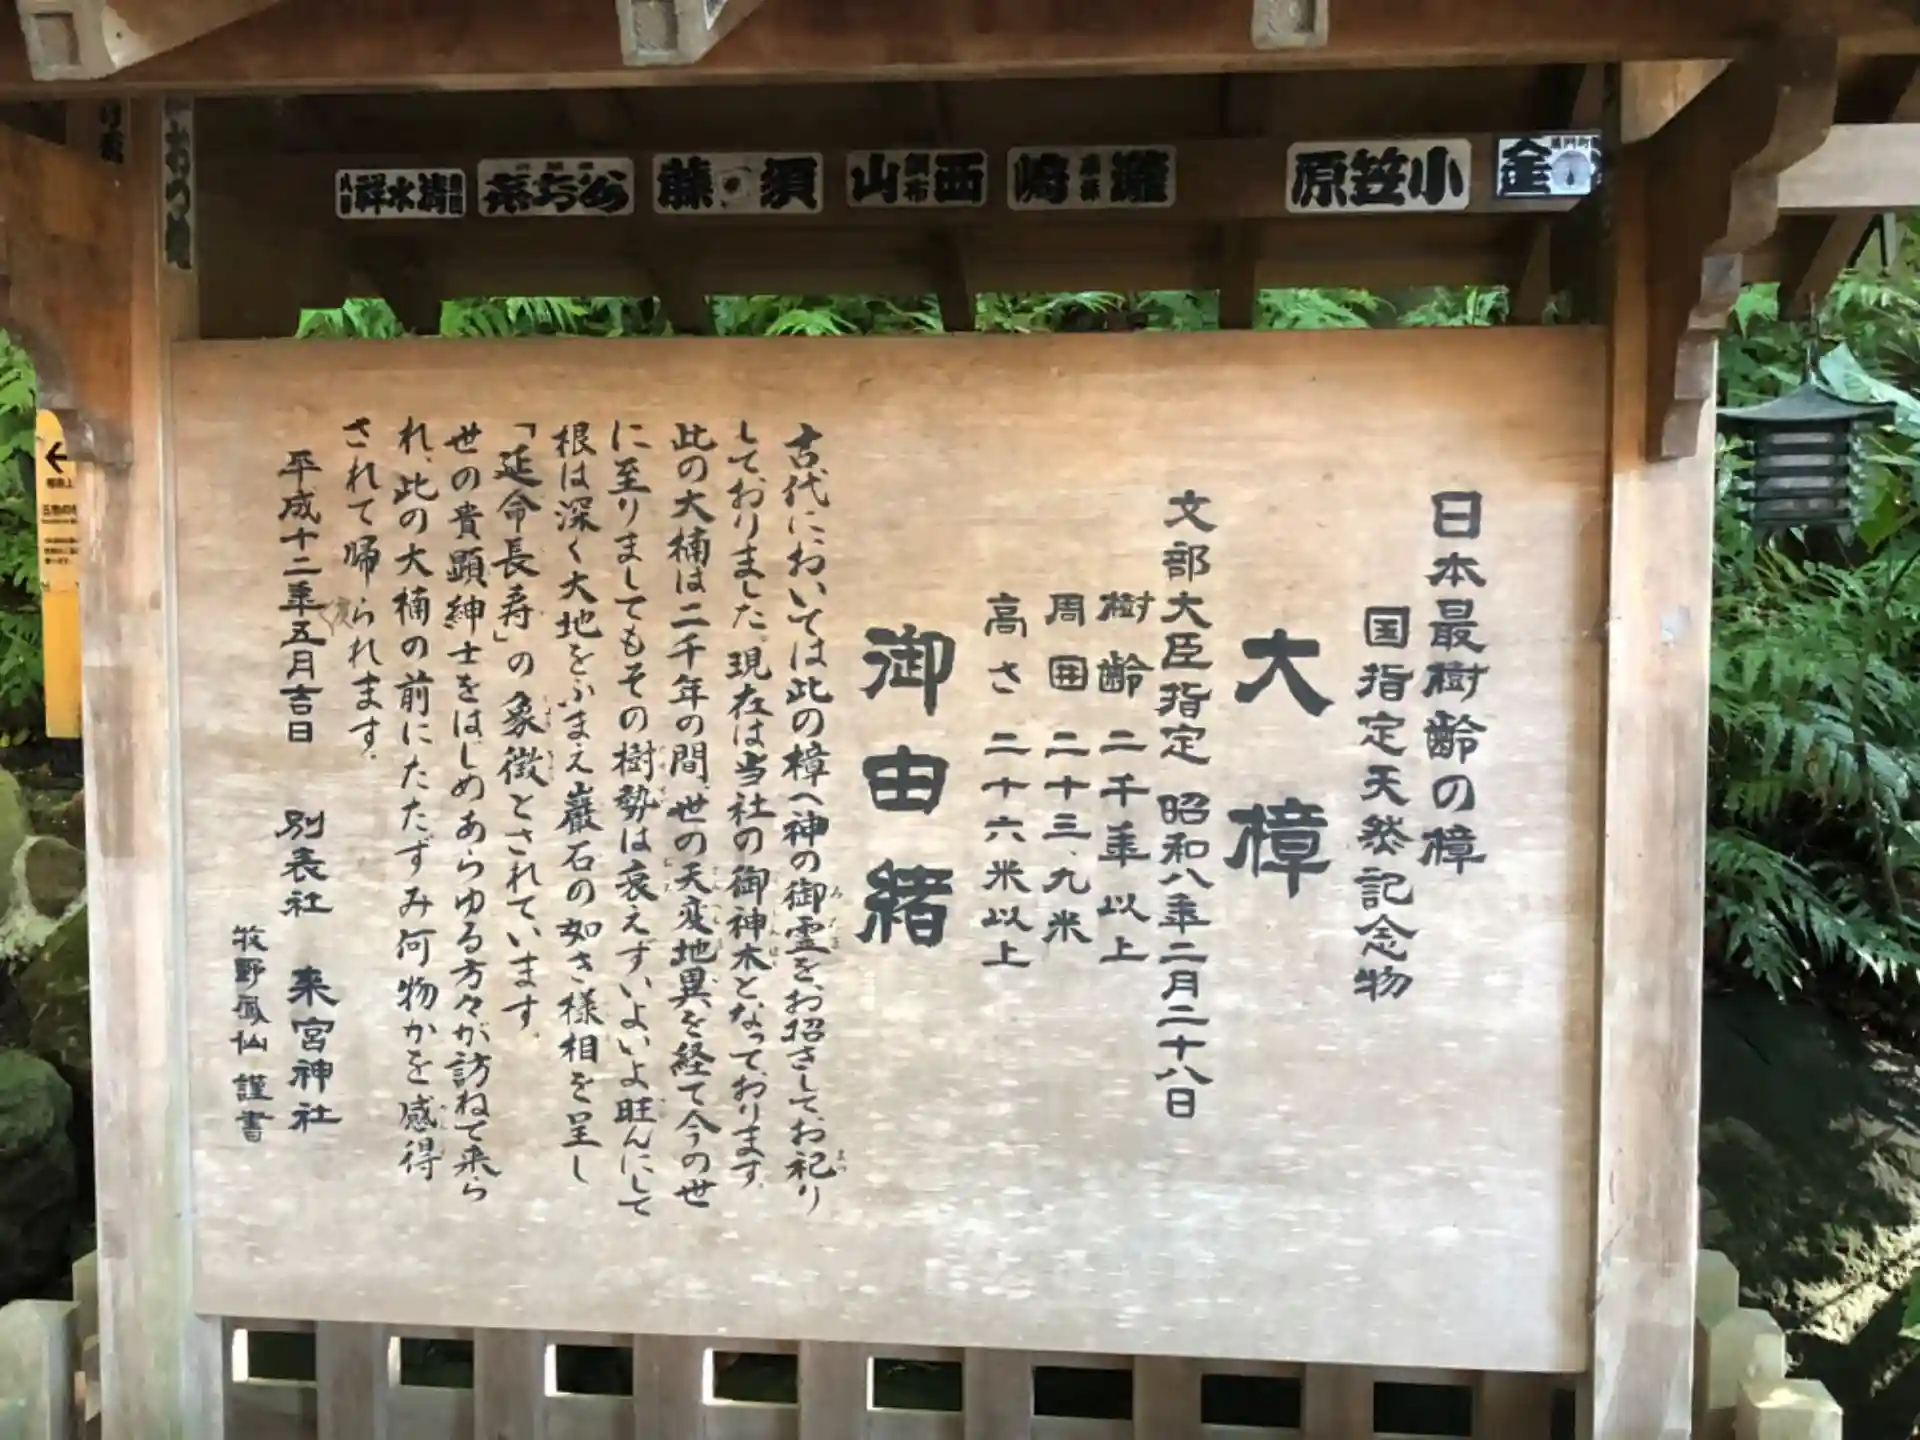 小笠原
西山
須藤
清水祥
日本最樹齢の樟
国指定天然記念物
大樟
文部大臣指定 昭和八年二月二十八日
樹齢 二千年以上
周囲 二十三、九米
高さ 二十六米以上
御由緒
古代においては此の樟へ神の御霊をお招きしてお祀り
しておりました。現在は当社の御神木となっております。
此の大楠は二千年の間、世の天変地異を経て今の世
に至りましてもその樹勢は衰えずいよいよ旺んにして
根は深く大地をふまえ巖石の如き様相を呈し
「延命長寿」の象徴とされています。
世の貴顕紳士をはじめあらゆる方々が訪ねて来ら
れ、此の大楠の前にたたずみ何物かを感得
されて帰られます。
平成十二年五月吉日 別表社 来宮神社
牧野鳳仙 謹書